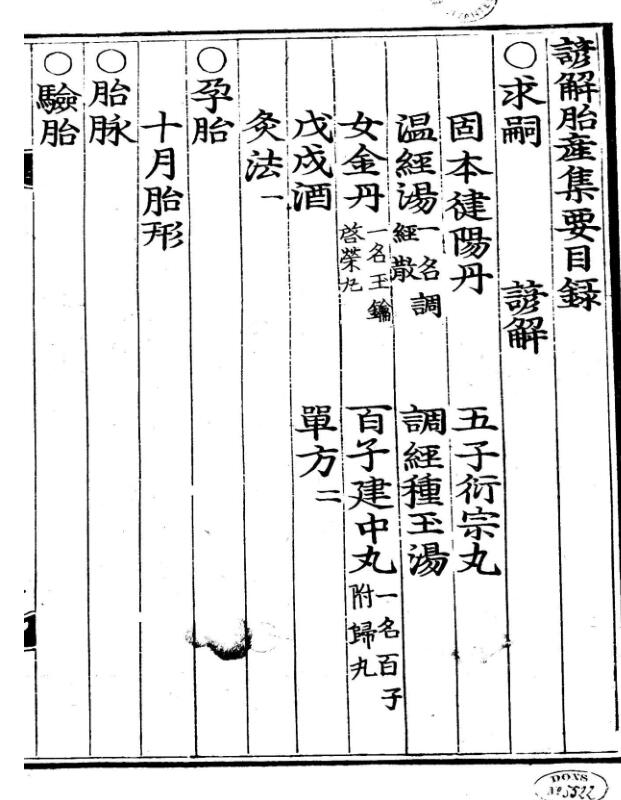 諺解胎産集要目録
○求嗣 諺解
固本健陽丹 五子衍宗丸
温經湯一名調經散 調經種玉湯
女金丹一名玉鑰啓榮丸 百子建中丸一名百子附歸丸
戊戌酒 單方二
灸法一
○孕胎
十月胎形
○胎脉
○驗胎
DONS
Nº 5522